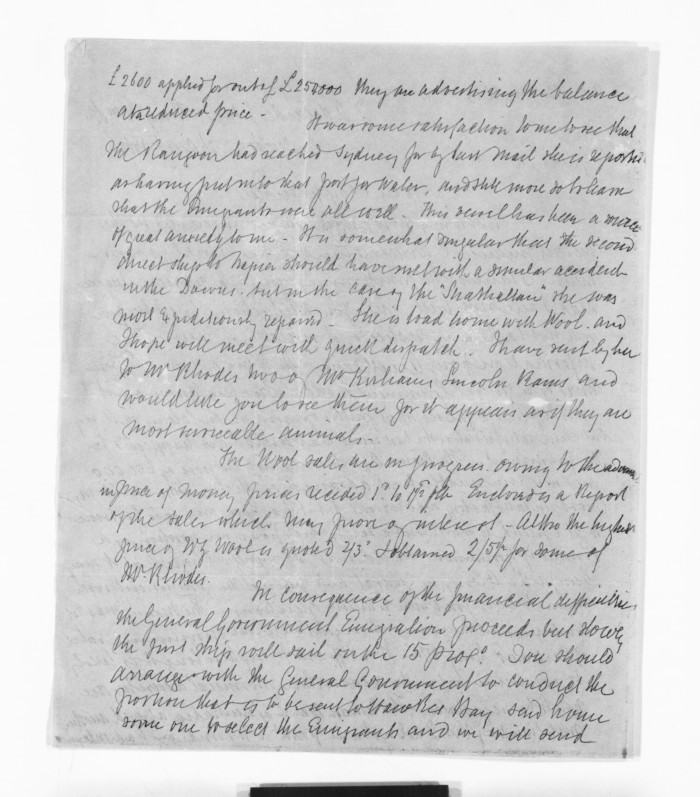 £2600 applied for out of £250000 they are advertising the balance
at reduced price -
It was some satisfaction to me to see that
the Rangoon had reached Sydney for by last mail she is reported
as having put into that port for Water, and still more so to learn
that the Emigrants were all well. This vessel has been a source
of great anxiety to me - It is somewhat singular that the second
direct ship to Napier should have met with a similar accident
in the Downs. but in the case of the "Strathallan" she was
most expeditiously repaired. She is to load home with Wool. and
I hope will meet with quick dispatch. I have sent by her
to Mr Rhodes two of Mr Kirkham's Lincoln Rams and
would like you to see them for it appears as if they are
most serviceable animals -
The Wool sales are in progress. owing to the advance
in price of money prices receded 1d to
Enclosed is a Report
of the sales which may prove of interest - Altho the highest
price of NZ Wool is quoted 2/3 I obtained 2/5 for some of
Mr Rhodes.
In consequence of the financial difficulties
the General Government Emigration proceeds but slowly
the first ship will sail on the 15 proxo. You should
arrange with the General Government to conduct the
portion that is to be sent to Hawkes Bay send home
some one to select the Emigrants and we will send